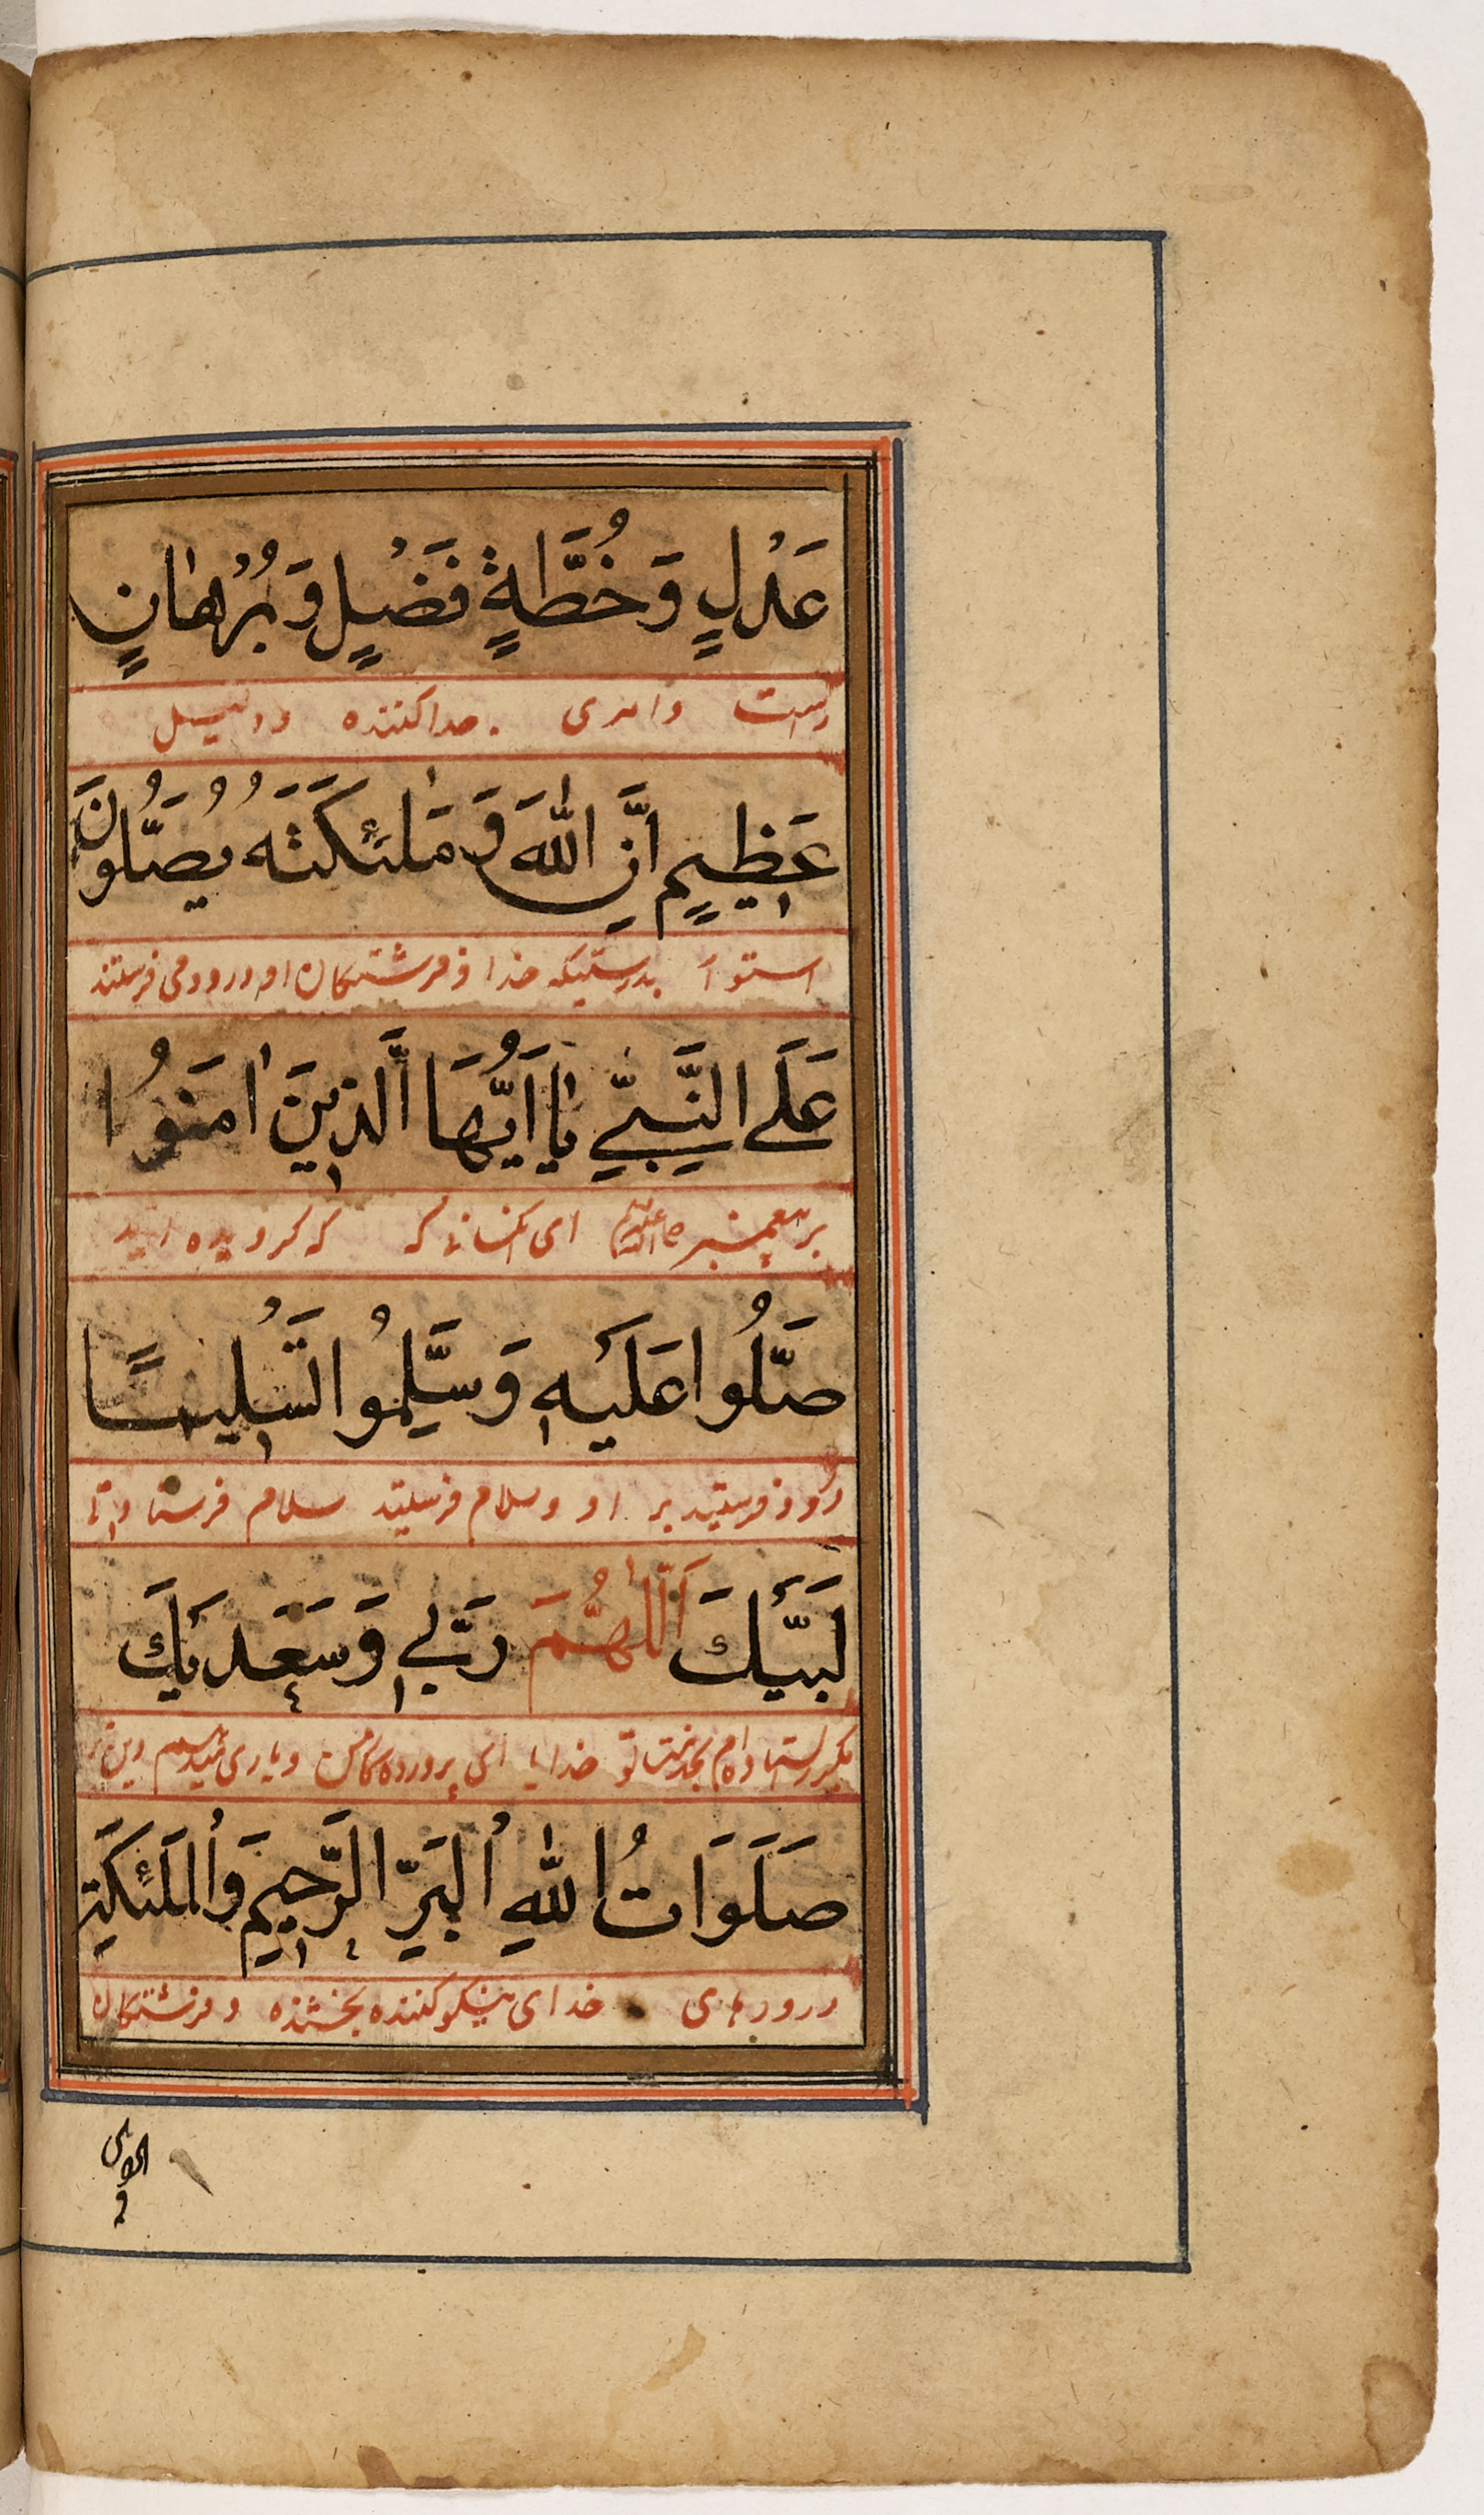 عَدْلٍ وَخُطَّةٍ فَضْیٍلٍ وَبُرْهٰانٍ
راست وامری جداکننده ودلیل
عَظِیمٍ اِنَّ اللّٰهَ وَمَلٰئِکَتَهُ یُصَلُّونَ
استوار بدرستیکه خدا و فرشتکان او درود می فرستند
عَلَی النَّبِیِّ یٰا اَیُّهَا الَّذِینَ اٰمَنُوا
بر پیغمبر ای انکسانی که که کرویده اید
صَلُّوا عَلَیْهِ وَسَلِّمُوا تَسْلِیمًا
درود فرستید بر او وسلام فرستید سلام فرستادنی
لَبَّیْكَ اَللّٰهُمَّ رَبِّی وَسَعْدَیْكَ
خدایا ای پروردکار من و یاری
صَلَوَاتُ اللّٰهِ اْلبَرِّ الرَّحِیمِ وَاْلمَلٰئِکَةِ
درودهای خدای نیکو کننده بخشنده و فرشتکان